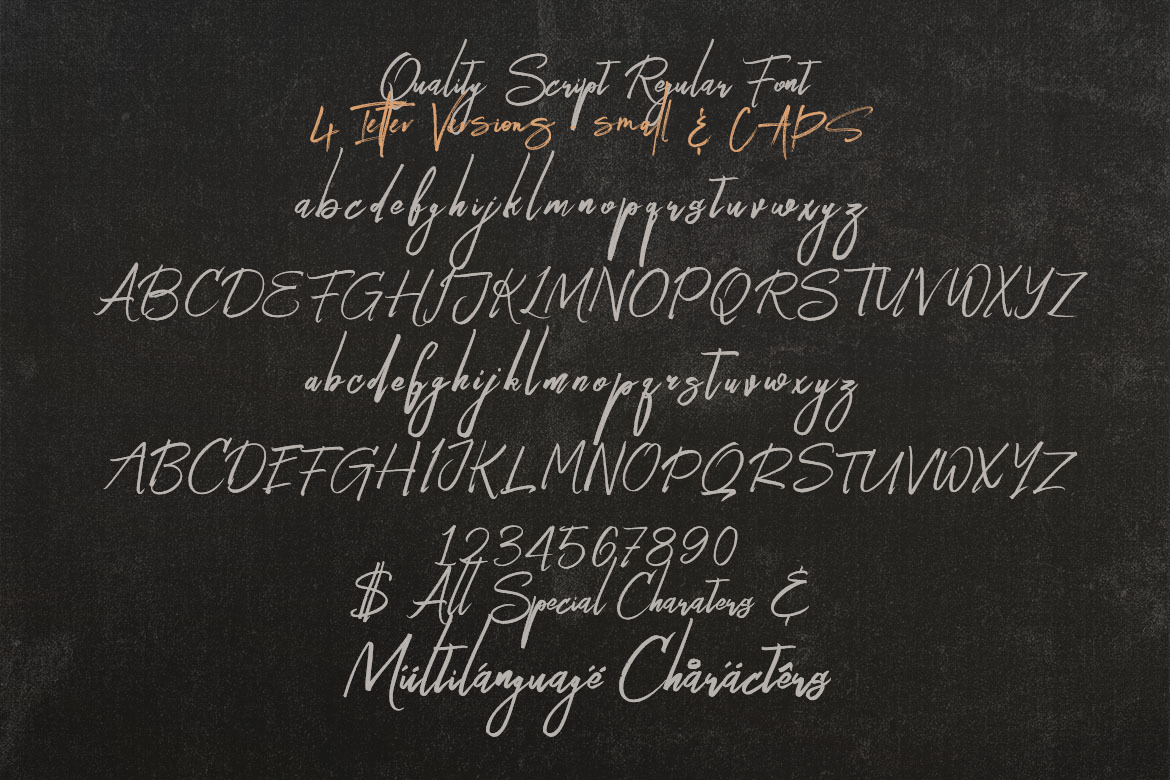 Quality Script Regular Font
4 letter Versions small & CAPS
abcdefghijklmnopqrstuvwxyz
ABCDEFGHIJKLMNOPQRSTUVWXYZ
abcdefghijklmnopqrstuvwxyz
ABCDEFGHIJKLMNOPQRSTUVWXYZ
1234567890
$ All Special Charaters &
Mültilánguagë Chåräctêrs